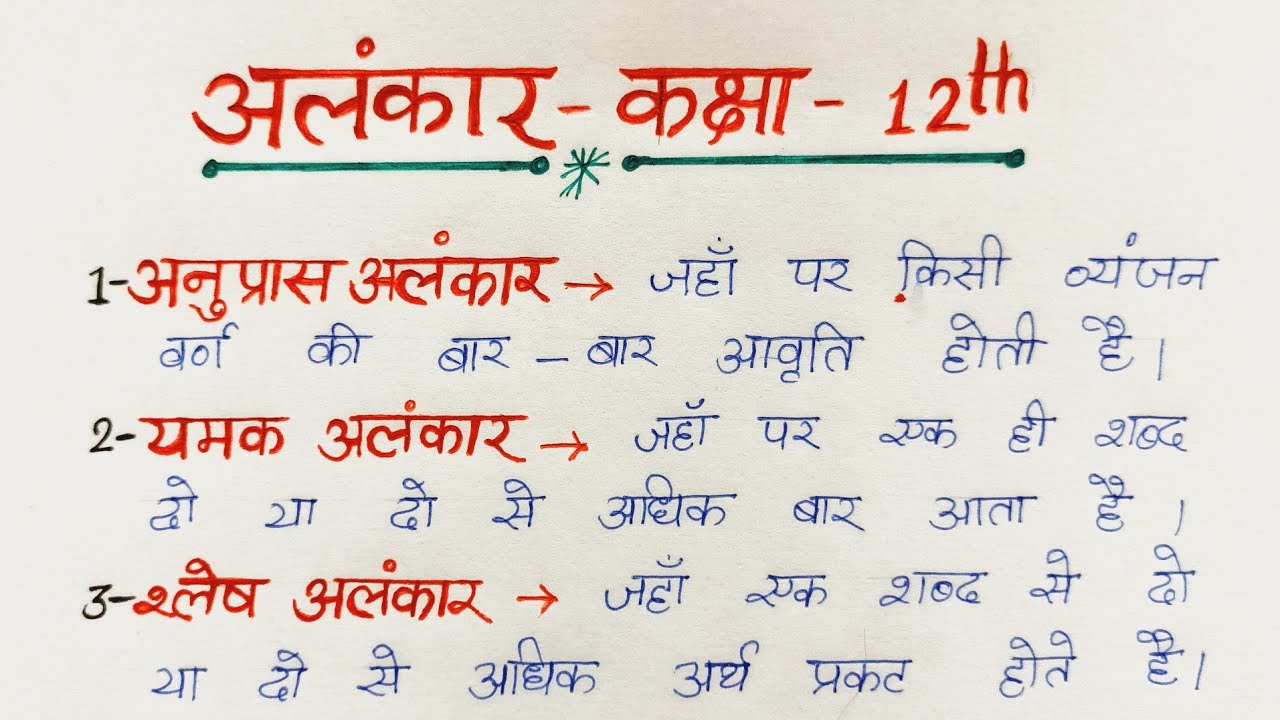 अलंकार - कक्षा - 12th
1- अनुप्रास अलंकार → जहाँ पर किसी व्यंजन
वर्ण की बार - बार आवृति होती है।
2- यमक अलंकार → जहाँ पर एक ही शब्द
दो या दो से अधिक बार आता है।
3- श्लेष अलंकार → जहाँ एक शब्द से दो
या दो से अधिक अर्थ प्रकट होते है।